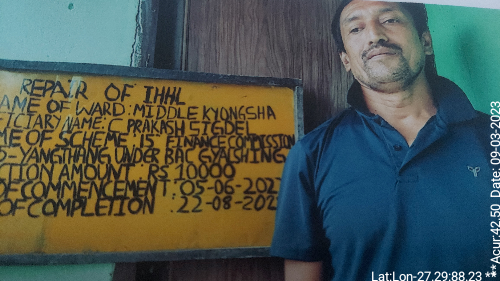 REPAIR OF IHHL
AME OF WARD: MIDDLE KYONGSHA
FICIARY NAME: C. PRAKASH SIGDEL
ME OF SCHEME 15 FINANCE COMMISSION
D-YANGTHANG UNDER BAC GYALSHING
TION AMOUNT: RS 10000
OF COMMENCEMENT: 05-06-202
OF COMPLETION : 22-08-202
Lat:Lon-27.29:88.23 **Aqur:42.50 Date: 09-03-2023